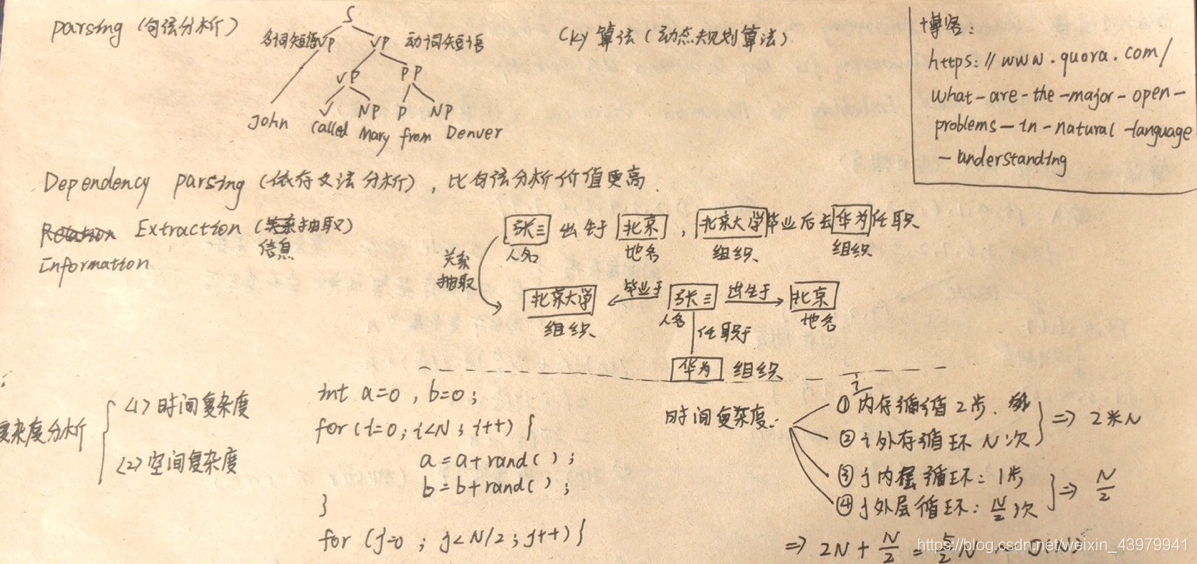 parsing (句法分析)
S
名词短语 VP
VP 动词短语
VP PP
V NP P NP
John called Mary from Denver
CKY算法(动态规划算法)
+博客:
https://www.quora.com/
what-are-the-major-open-
problems-in-natural-language
-understanding
Dependency parsing (依存文法分析), 比句法分析价值更高.
Relation Extraction (关系抽取)
信息
Information
张三 出生于 北京, 北京大学 毕业后去 华为 任职
人名 地名 组织 组织
关系
抽取
北京大学 毕业于 张三 出生于 北京
组织 人名 地名
任职于
华为 组织
复杂度分析
(1) 时间复杂度
(2) 空间复杂度
int a=0, b=0;
for (i=0; i<N; i++) {
a=a+rand();
b=b+rand();
}
for (j=0; j<N/2; j++) {
时间复杂度:
i
① 内存循循 2步.
② i外存循环 N次
⇒ 2*N
③ j内层循环: 1步
④ j外层循环: N/2次
⇒ N/2
⇒ 2N + N/2 = 5/2 N
https://blog.csdn.net/weixin_43979941